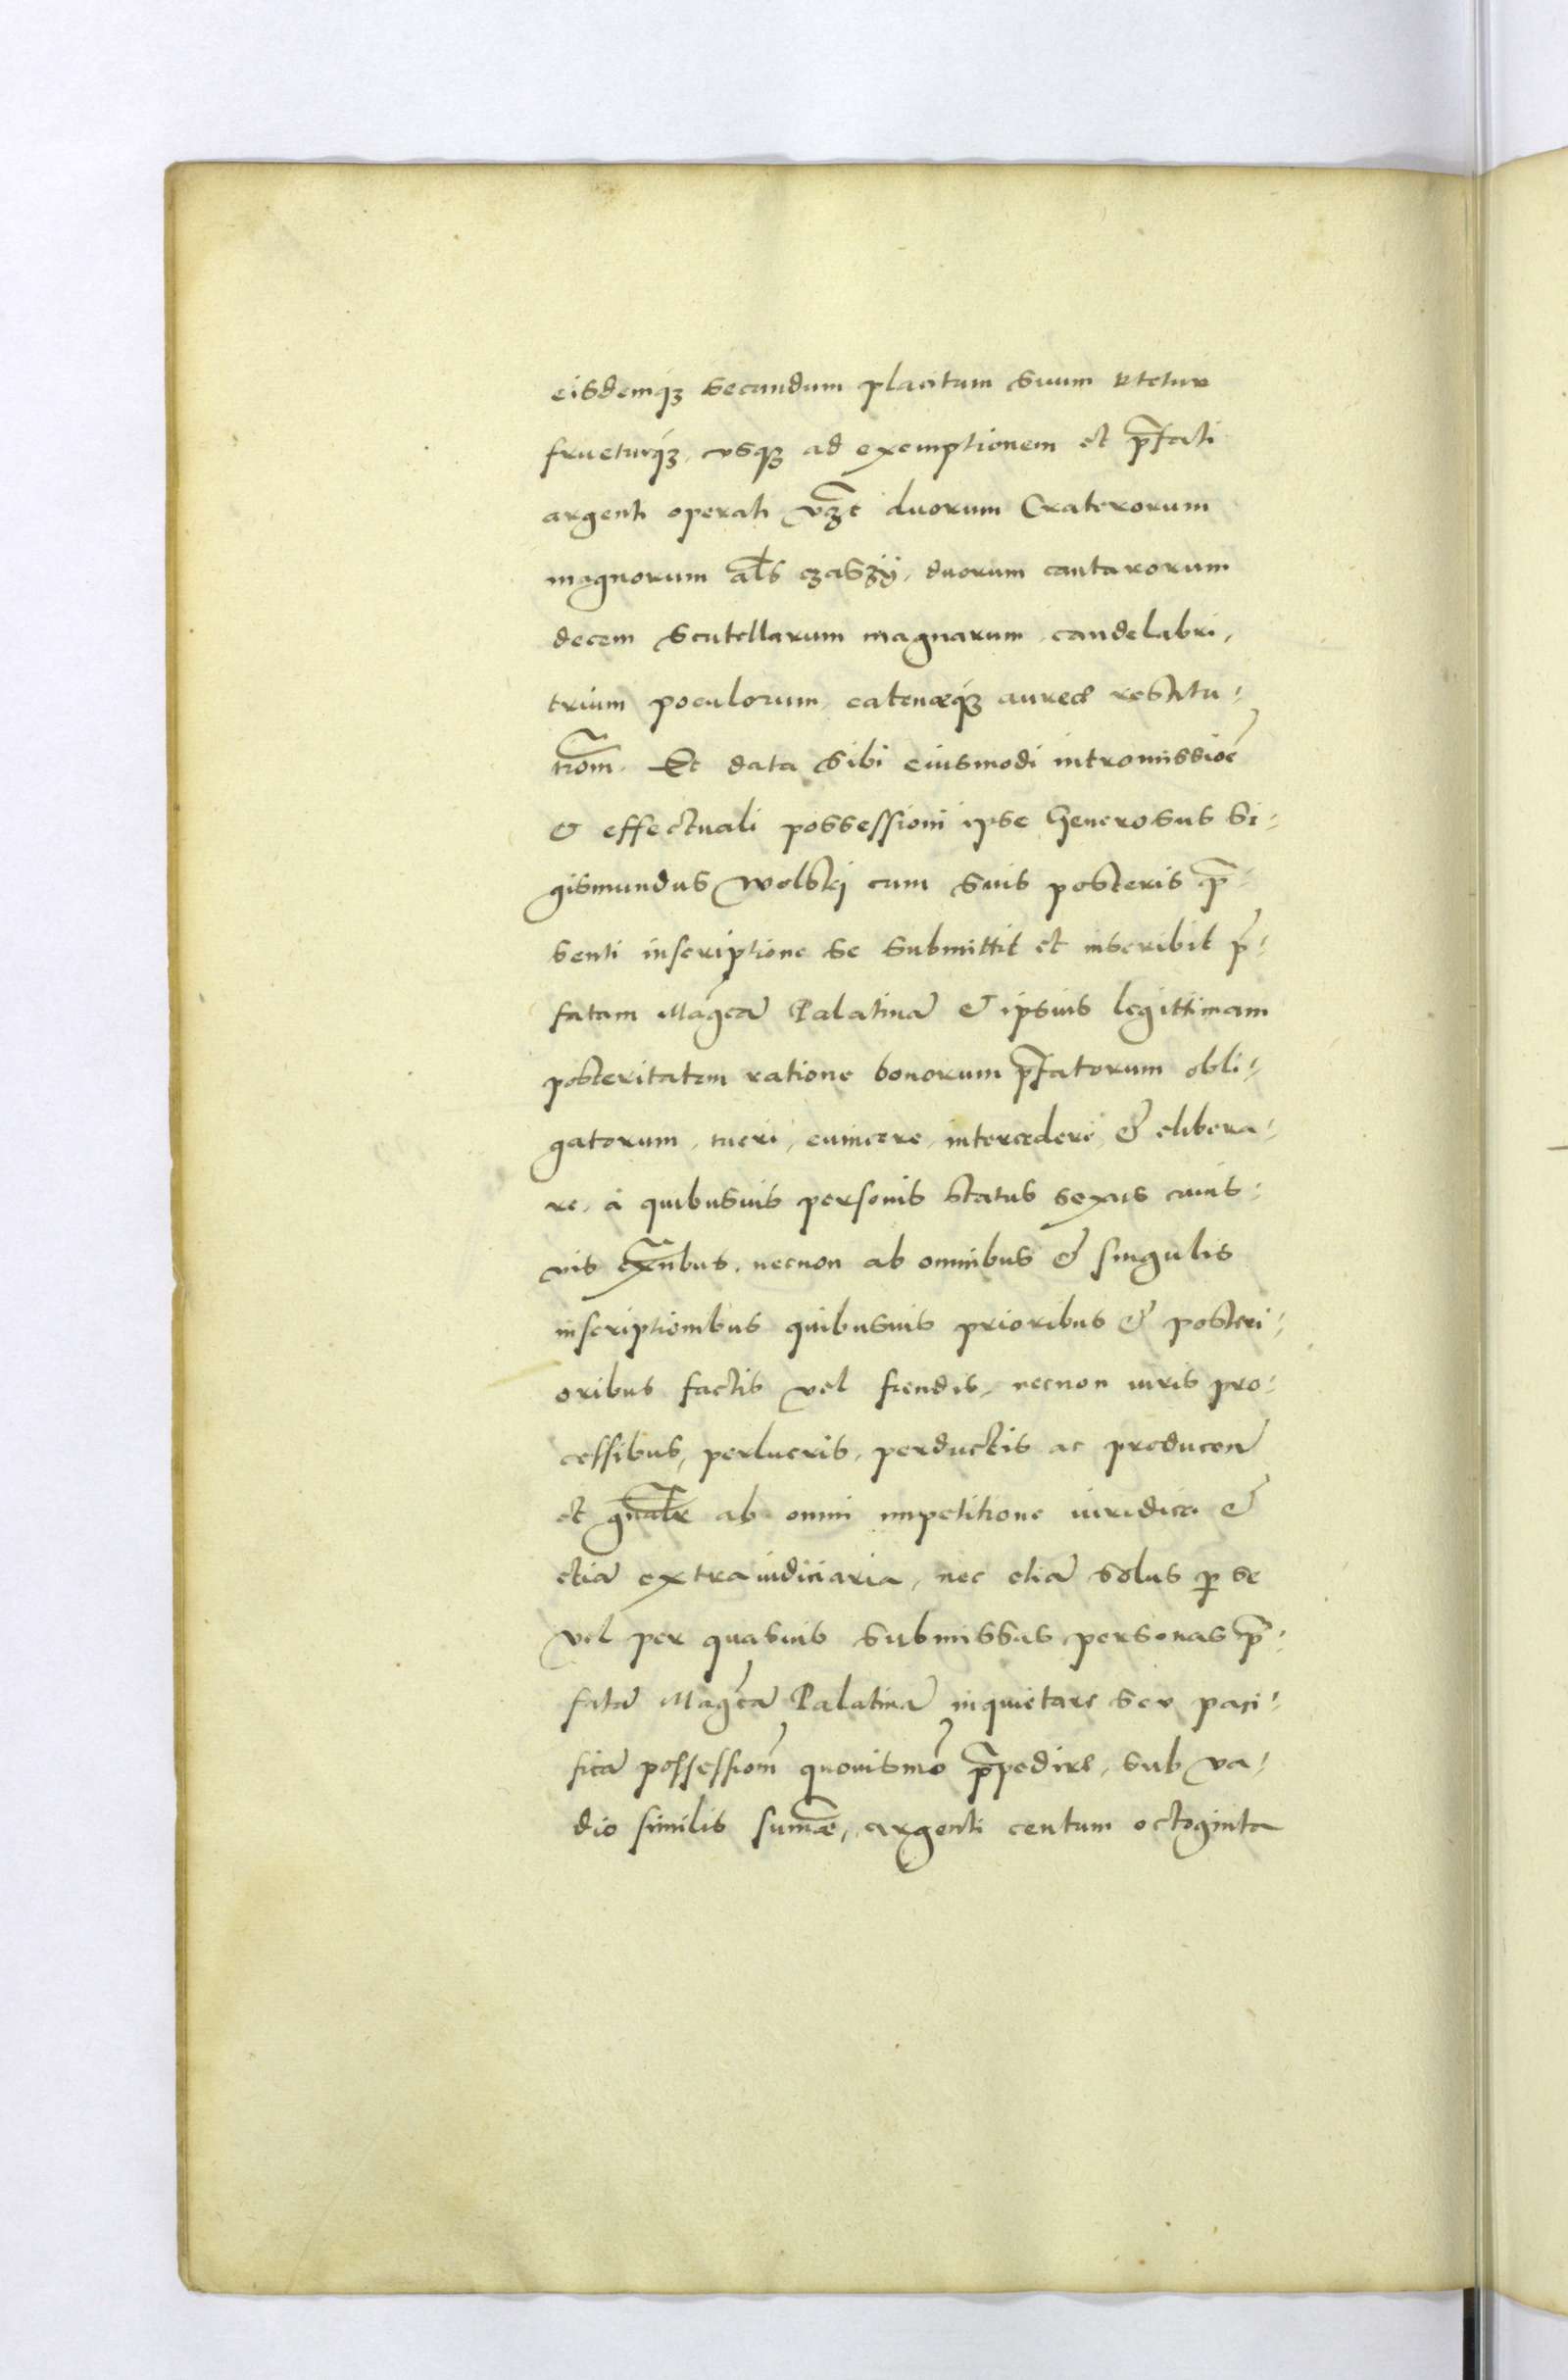 eisdemq́ꝫ secundum placitum suum vtetur
frueturq́ꝫ, vsqꝫ ad exemptionem et p̄fati
argenti operati vꝫt duorum Craterorum
magnorum al̄s czaszÿ, duorum cantarorum
decem scutellarum magnarum, candelabri,
trium poculorum, catenæq́ꝫ aureæ restitu-
tiom̄. Et data sibi eiusmodi intromissioē
& effectuali possessioni ipse Generosus Si-
gismundus Wolskj cum suis posteris p̄-
senti inscriptione se submittit et inscribit p̄-
fatam Mag̃cā Palatinā & ipsius legittimam
posteritatem ratione bonorum p̄fatorum obli-
gatorum, tueri, euincere, intercedere, & elibera-
re, à quibusuis personis status sexus cuius-
vis exn̄bus, necnon ab omnibus & singulis
inscriptionibus quibusuis prioribus & posteri-
oribus factis vel fiendis, necnon iuris pro-
cessibus, perlucris, perductis ac producen̄
et gn̄alr ab omni impetitione iuridica &
etiā extraiudiciaria, nec etiā solus ꝑ se
vel per quasuis submissas personas p̄-
fatā Mag̃cā Palatinā inquietare seu paci-
ficā possessiom̄ quouismō p̄pedire, sub va-
dio similis sum̄æ, argenti centum octoginta